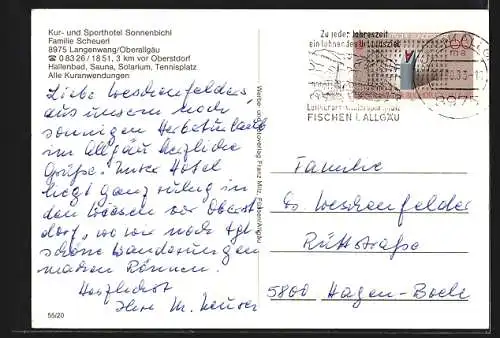 Kur- und Sporthotel Sonnenbichl
Familie Scheuerl
8975 Langenwang/Oberallgäu
☎ 0 83 26 / 18 51, 3 km vor Oberstdorf
Hallenbad, Sauna, Solarium, Tennisplatz
Alle Kuranwendungen
Liebe Weschenfelders,
aus unserem noch
sonnigen Herbsturlaub
im Allgäu herzliche
Grüße. Unser Hotel
liegt ganz ruhig in
den Wiesen vor Oberst
dorf, wo wir noch
schöne Wanderungen
machen können.
Herzlichst
Ihre M.
55/20
Werbe- und Fotoverlag Franz Milz, Füssen/Allgäu
Zu jeder Jahreszeit
ein lohnendes Urlaubsziel
FISCHEN I. ALLGÄU
60
8975
Familie
Weschenfelder
Rüttstraße
5800 Hagen-Boele